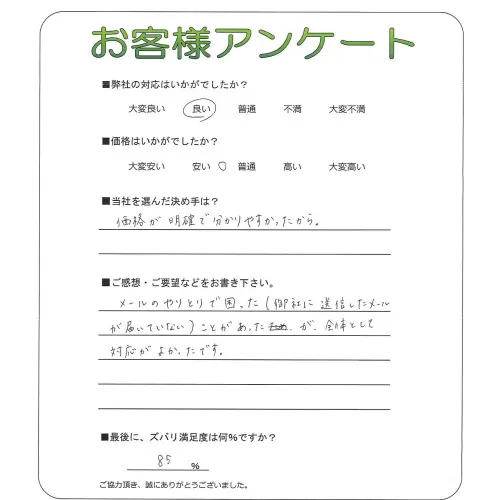 お客様アンケート
■弊社の対応はいかがでしたか？
大変良い 良い 普通 不満 大変不満
■価格はいかがでしたか？
大変安い 安い 普通 高い 大変高い
■当社を選んだ決め手は？
価格が明確で分かりやすかったから。
■ご感想・ご要望などをお書き下さい。
メールのやりとりで困った（御社に送信したメール
が届いていない）ことがあった が、全体として
対応がよかったです。
■最後に、ズバリ満足度は何%ですか？
85 %
ご協力頂き、誠にありがとうございました。